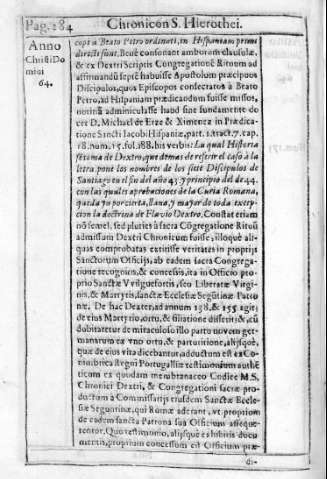 Pag. 284 Chronicon S. Hierothei.
Anno Christi Domini 64.
copi a Beato Petro ordinati, in Hispaniam primi
directi sunt. Bene consonant amborum clausulæ,
& ex Dextri Scriptis Congregationē Rituum ad
affirmandū septē habuisse Apostolum præcipuos
Discipulos, quos Episcopos consecratos à Beato
Petro, ad Hispaniam prædicandum fuisse missos,
notitiā adminiculasse haud sine fundamento do
cet D. Michael de Erze & Ximenez in Prædica
tione Sancti Iacobi Hispaniæ, part. 1. tract. 7. cap.
18. num. 15. fol. 188. his verbis: La qual Historia
sētoma de Dextro, que demas de referir el caso à la
letra pone los nombres de los siete Discipulos de
Santiago en el fin del año 43. y principio del de 44.
con las quales aprobaciones de la Curia Romana,
queda yo por cierta, llana, y mayor de toda excep-
cion la doctrina de Flavio Dextro. Constat etiam
nō semel, sed pluries à sacra Cōgregatione Rituū
admissum Dextri Chronicum fuisse, illoque ali-
quas comprobatas extitisse veritates in proprijs
Sanctorum Officijs, ab eadem sacra Congrega-
tione recognitis, & concessis, ita in Officio pro
prio Sanctæ Vvilguefortis, seu Liberatæ Virgi-
nis, & Martyris, sanctæ Ecclesiæ Segūtinæ Patro
næ. De hac Dexter, ad annum 138. & 155. agit;
de eius Martyrio, ortu, & filiatione disserit; & cū
dubitaretur de miraculoso illo partu novem ger-
manarum ex vno ortu, & parturitione, alijsque,
quæ de eius vita dicebantur, adductum est ex Co
nimbrica Regni Portugalliæ testimonium authē
ticum ex quodam membranaceo Codice M.S.
Chronici Dextri, & Congregationi sacræ pro-
ductum à Commissarijs eiusdem Sanctæ Eccle-
siæ Seguntinæ, qui Romæ aderant, vt proprium
de eadem sancta Patrona sua Officium asseque-
rentur. Quo testimonio, alijsque exhibitis docu-
mentis, proprium concessum est Officium præ-
di-